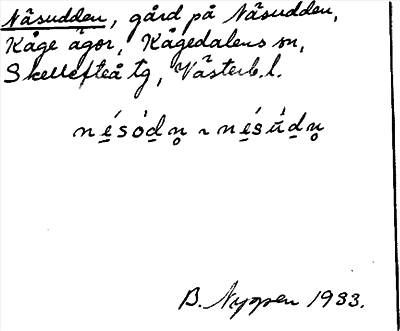 Näsudden, gård på Näsudden,
Kåge ägor, Kågedalens sn,
Skellefteå tg, Västerb. l.
B. Nyppen 1933.